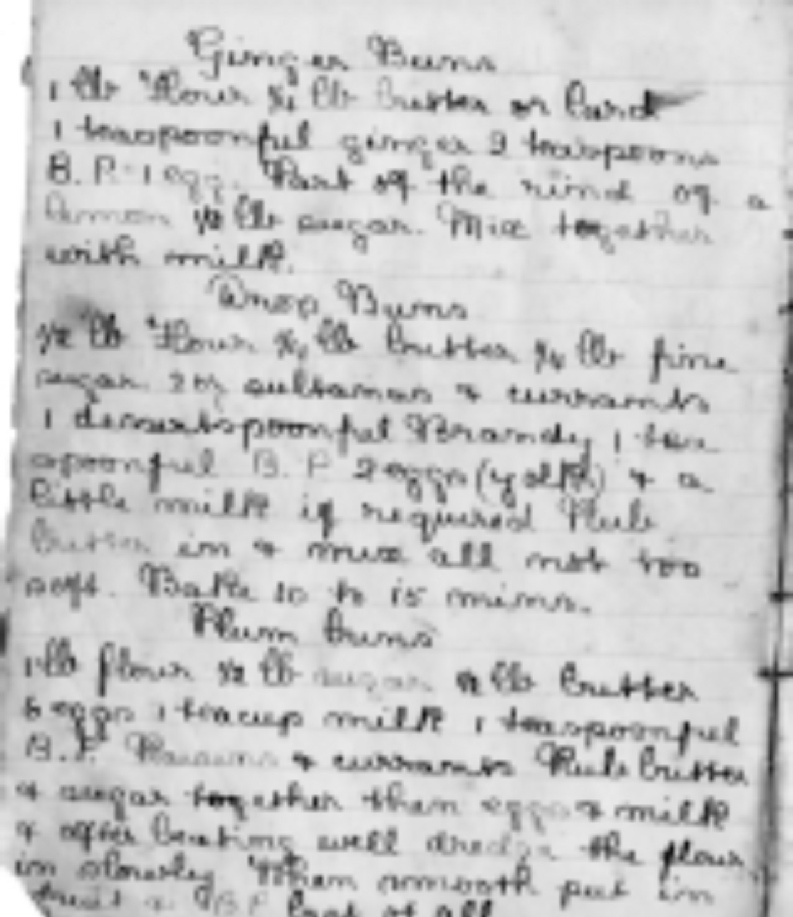 Ginger Buns
1 lb Flour ¼ lb butter or lard
1 teaspoonful ginger 2 teaspoons
B.P. 1 egg. Part of the rind of a
lemon ½ lb sugar. Mix together
with milk.
Drop Buns
½ lb Flour ¼ lb butter ¼ lb fine
sugar 2 oz sultanas & currants
1 dessertspoonful Brandy 1 tea
spoonful B.P 2 eggs (yolk) & a
little milk if required Rub
butter in & mix all not too
soft. Bake 10 to 15 mins.
Plum buns
1 lb flour ½ lb sugar ½ lb butter
6 eggs 1 teacup milk 1 teaspoonful
B.P. Raisins & currants Rub butter
& sugar together then eggs & milk
& after beating well dredge the flour
in slowly When smooth put in
fruit & B.P. last of all